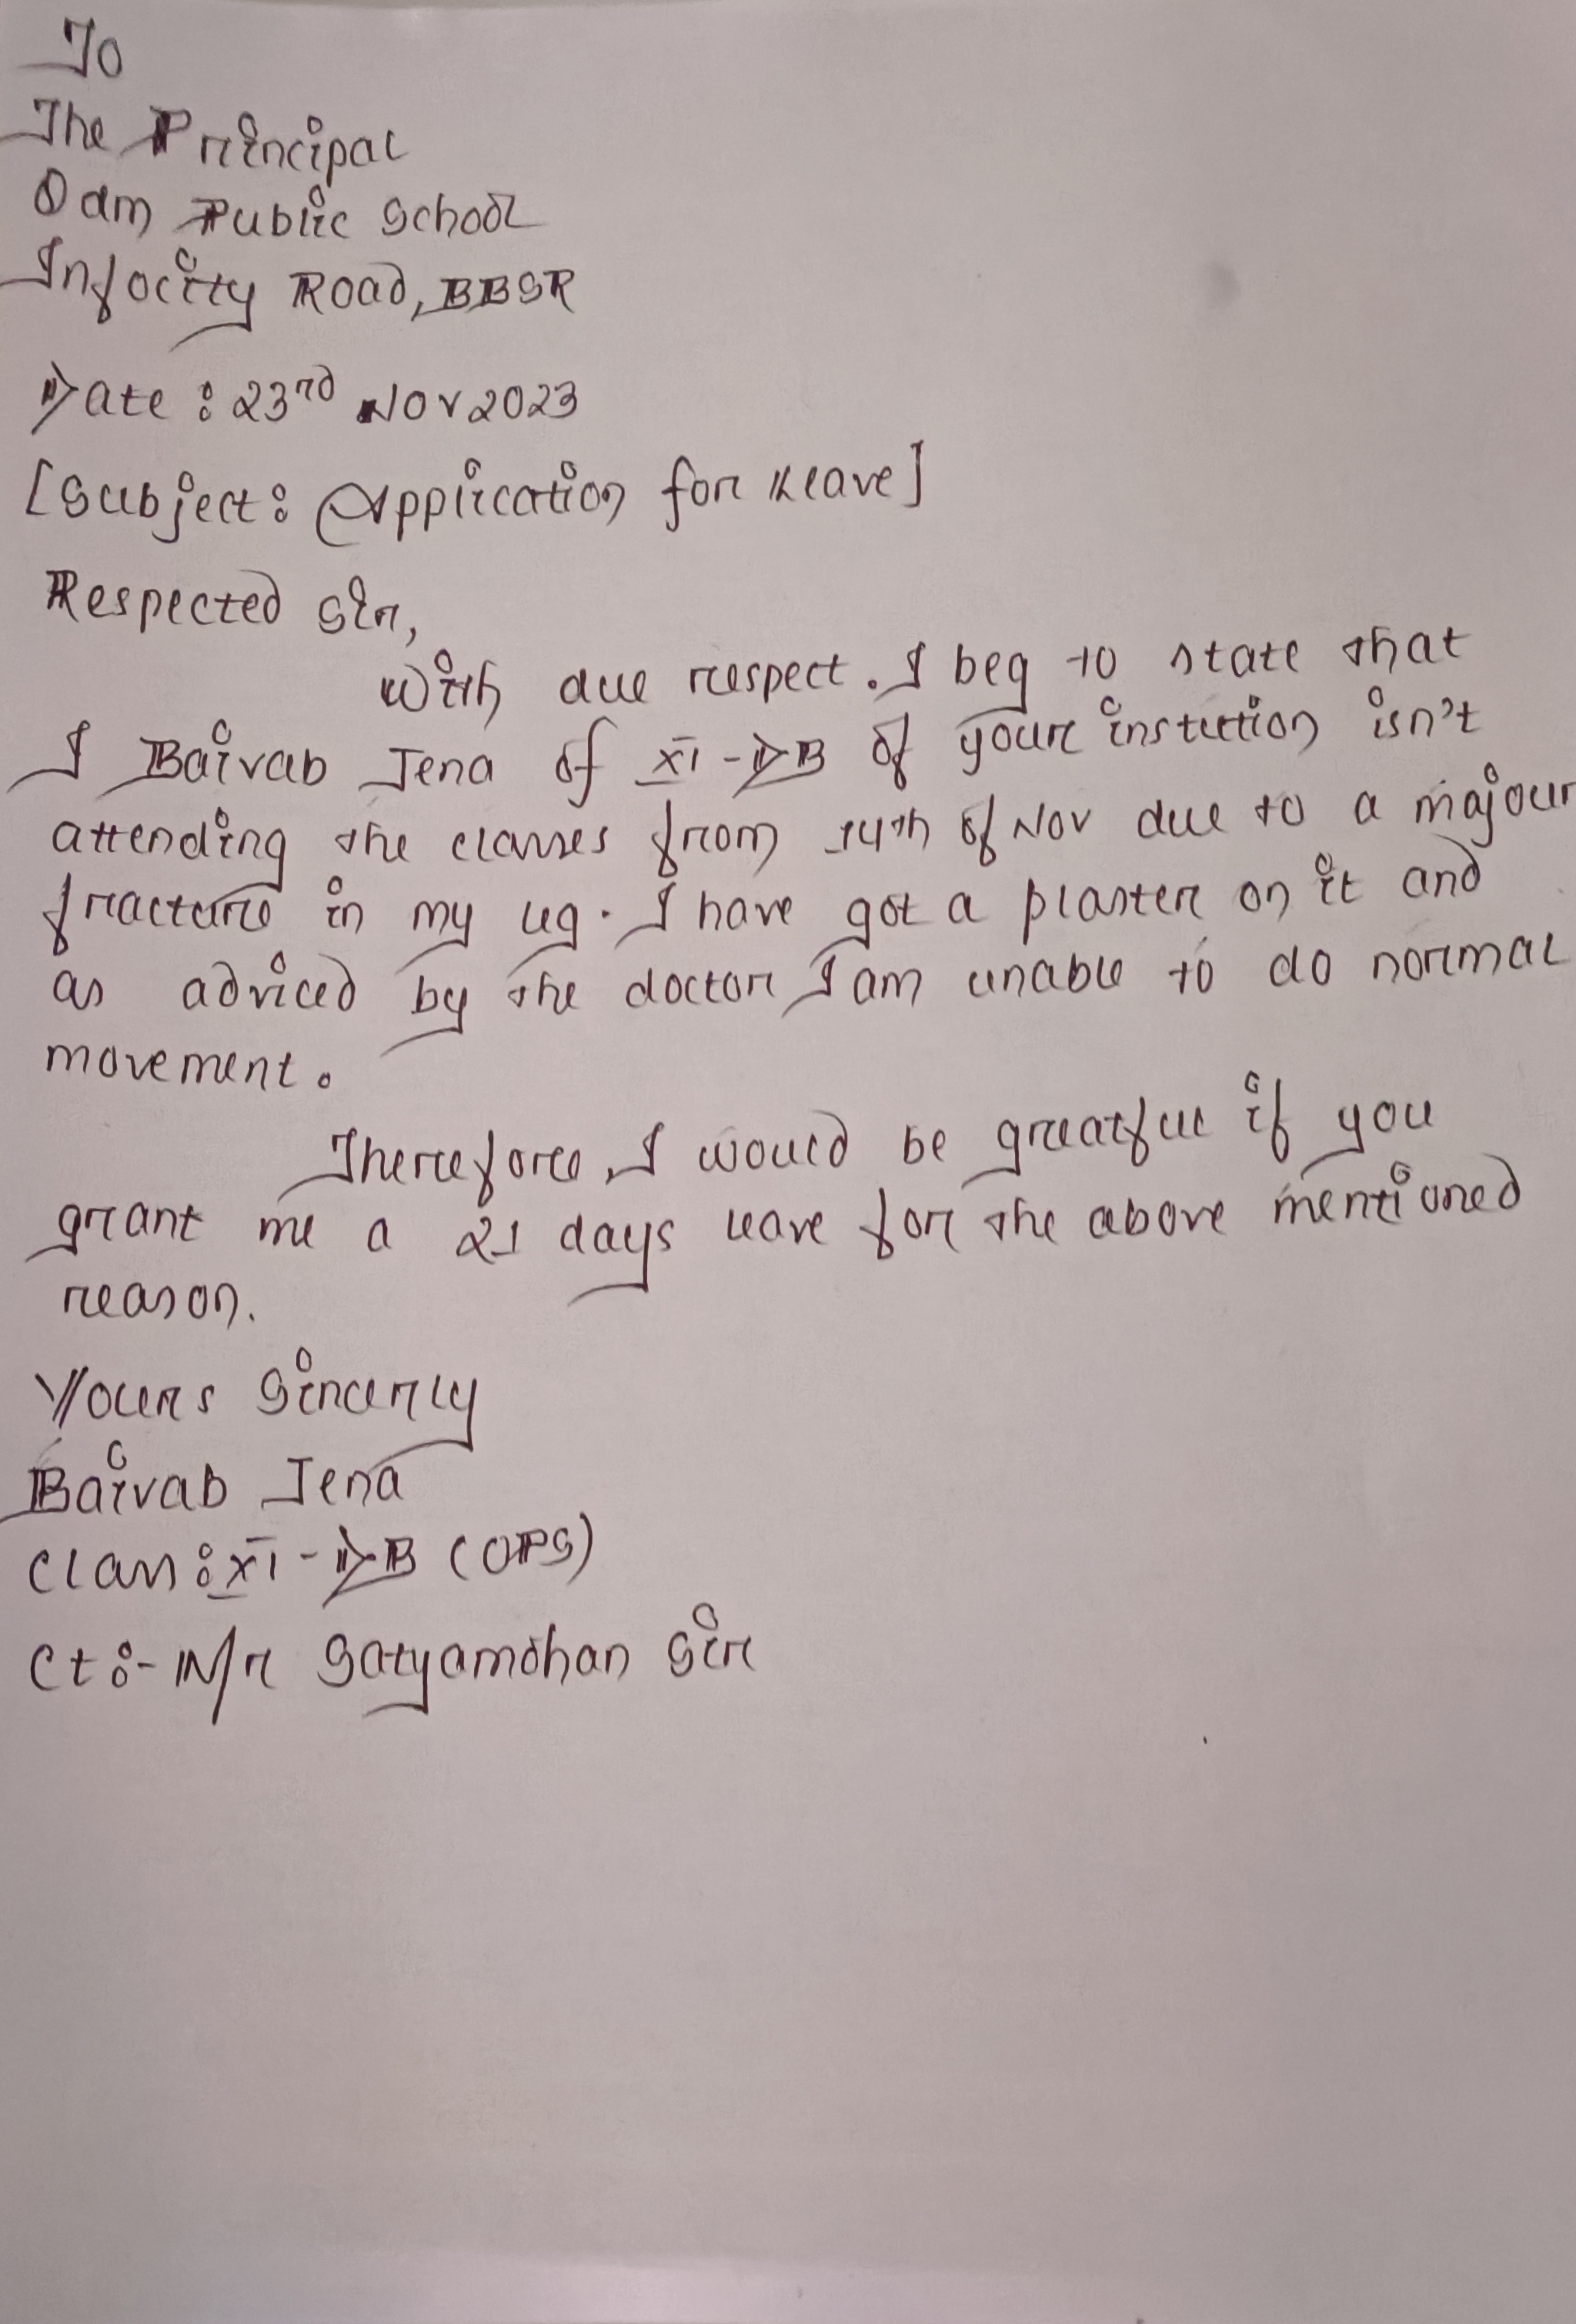 To
The Principal
Odm Public School
Infocity Road, BBSR
Date : 23rd Nov 2023
[Subject: Application for Leave]
Respected Sir,
With due respect. I beg to state that
I Baivab Jena of XI-DB of your instution isn't
attending the classes from 14th of Nov due to a majour
fracture in my leg. I have got a plaster on it and
as adviced by the doctor I am unable to do normal
movement.
Therefore, I would be greatful if you
grant me a 21 days leave for the above mentioned
reason.
Yours Sincerly
Baivab Jena
Class: XI-DB (OPS)
Ct :- Mr Satyamohan Sir